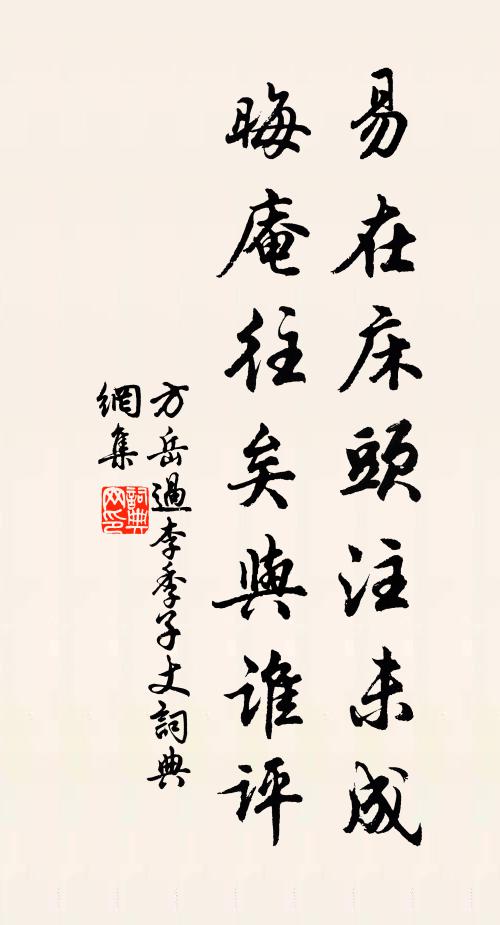 易在床頭注未成
晦庵往矣與誰評
方岳過李季子丈詞典
網集
詞典
网印